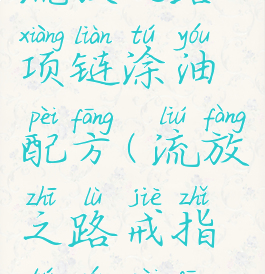 xiàng liàn tú yóu
项链涂油
pèi fāng liú fàng
配方(流放
zhī lù jiè zhǐ
之路戒指